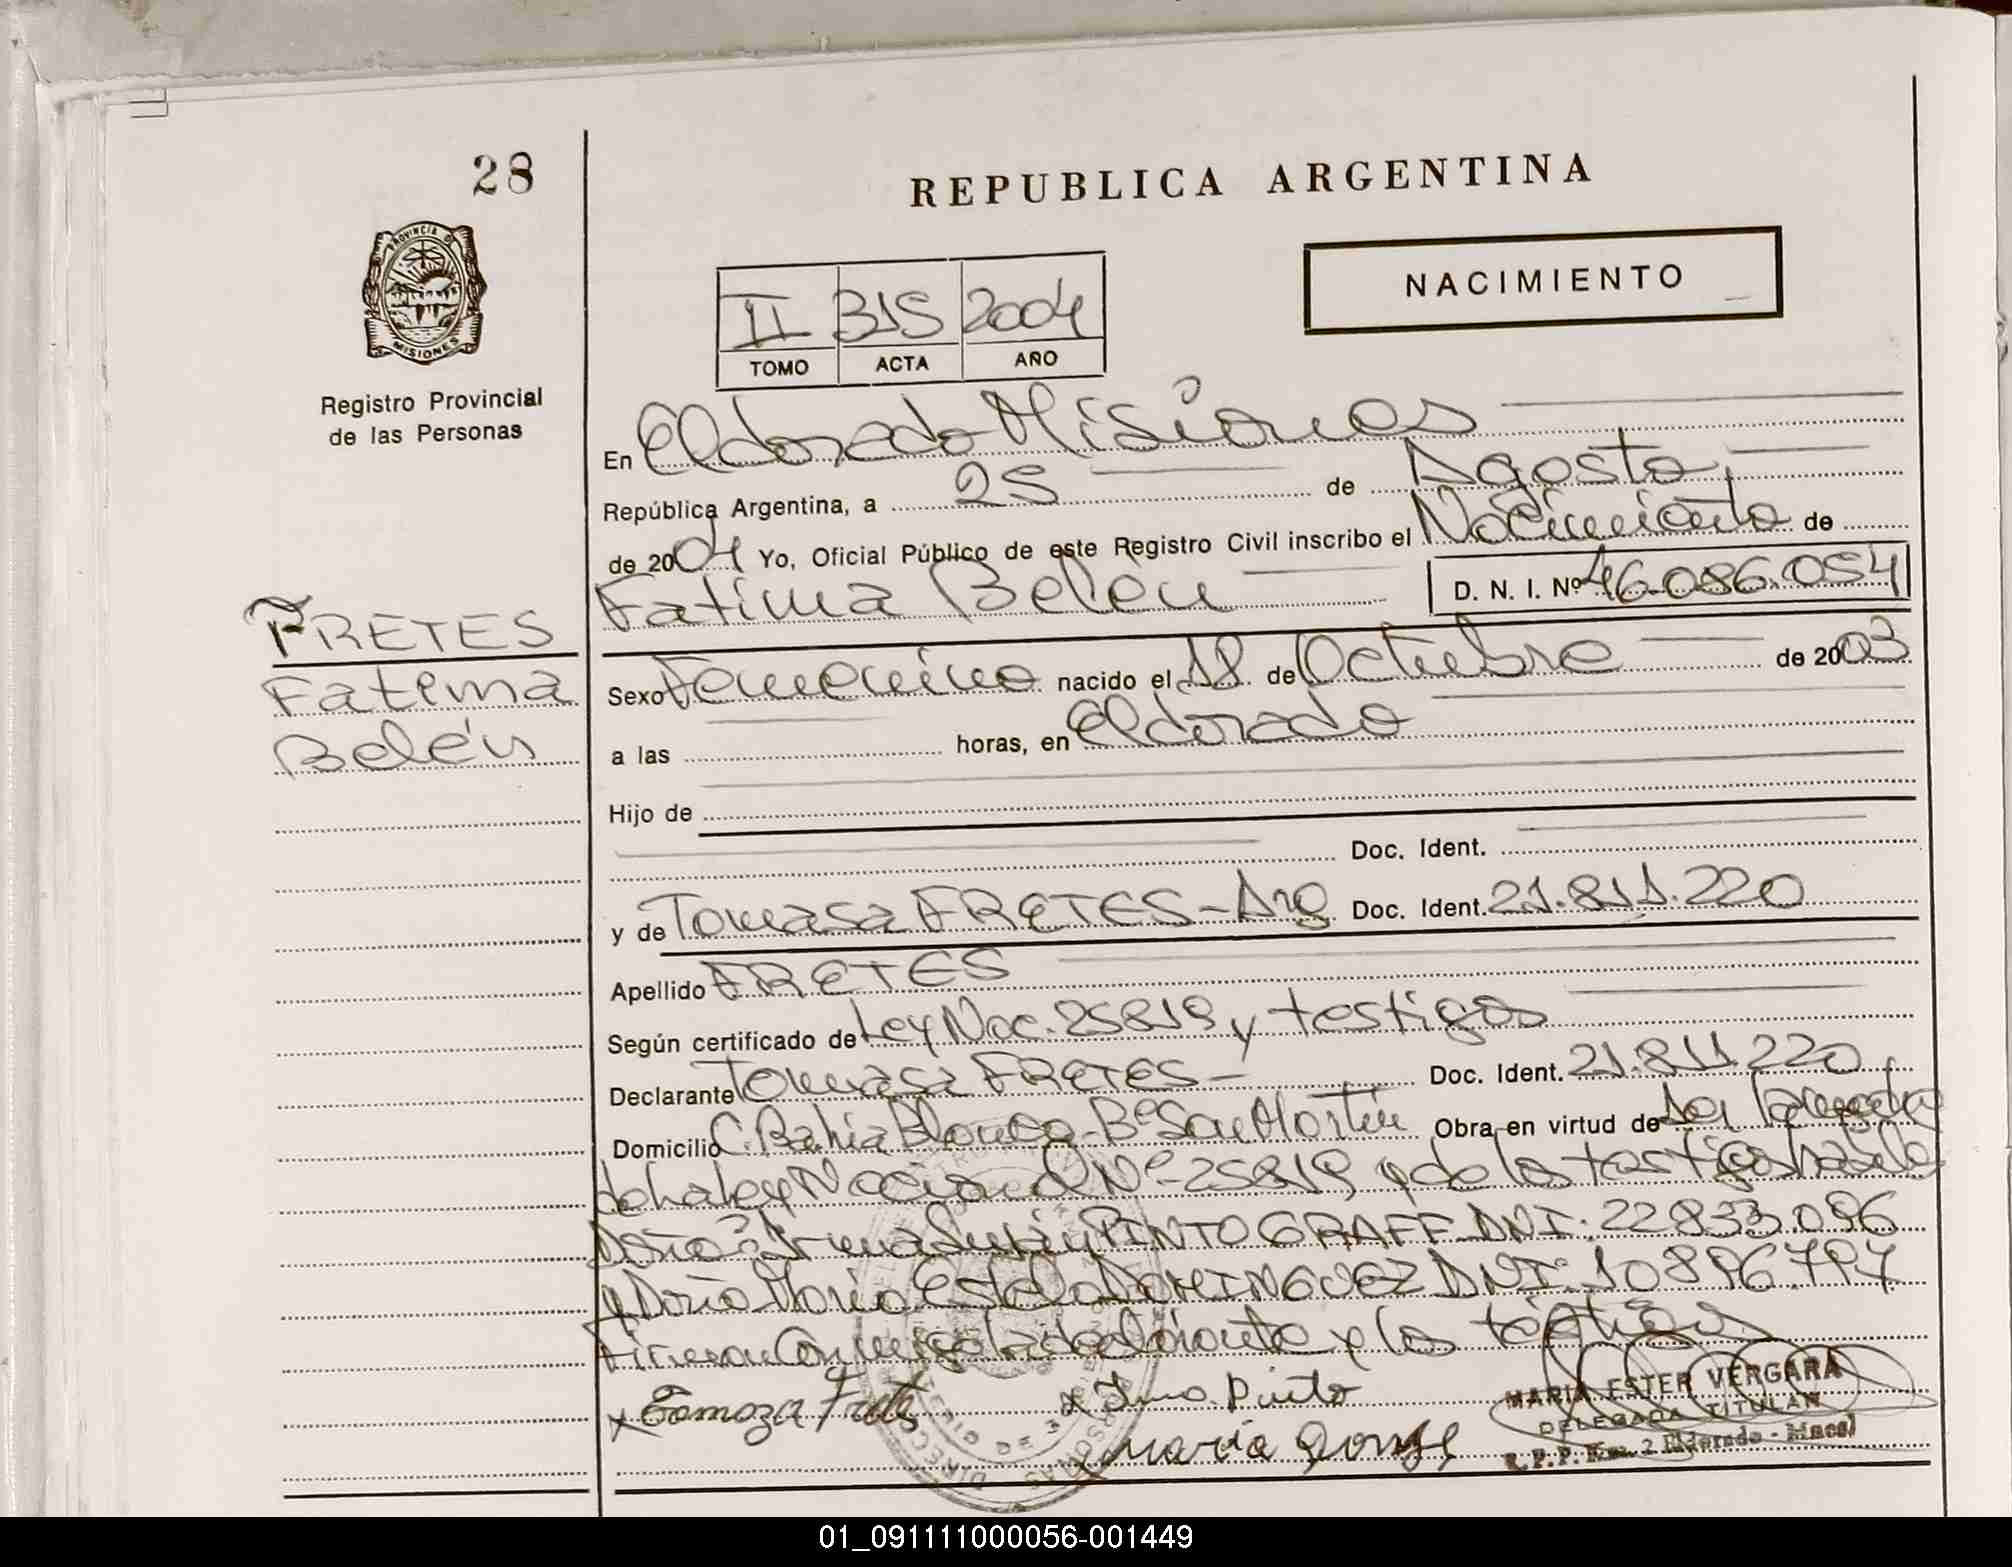 28
REPUBLICA ARGENTINA
PROVINCIA DE
MISIONES
Registro Provincial
de las Personas
NACIMIENTO
II BIS 2004
TOMO ACTA AÑO
En Eldorado Misiones
República Argentina, a 25 de Agosto
de 2004 Yo, Oficial Público de este Registro Civil inscribo el Nacimiento de
Fatima Belén D. N. I. Nº 46.086.054
FRETES
Fatima
Belén
Sexo Femenino nacido el 18 de Octubre de 2003
a las horas, en Eldorado
Hijo de
Doc. Ident.
y de Tomasa FRETES - Arg Doc. Ident. 21.811.220
Apellido FRETES
Según certificado de Ley Nac. 25819 y testigos
Declarante Tomasa FRETES - Doc. Ident. 21.811.220
Domicilio C. Bahia Blanca - Bº San Martín Obra en virtud de
de la Ley Nacional Nº 25819 y de los testigos
Doña: Irma PINTO GRAFF DNI: 22833.096
y Doña Maria Estela DOMINGUEZ DNI: 10896.797
Firman Conmigo la declarante y los testigos
x Tomaza Frets x Irma Pinto
Maria
MARIA ESTER VERGARA
DELEGADA TITULAR
R. P. P. Km. 2 Eldorado - Mnes)
01_091111000056-001449